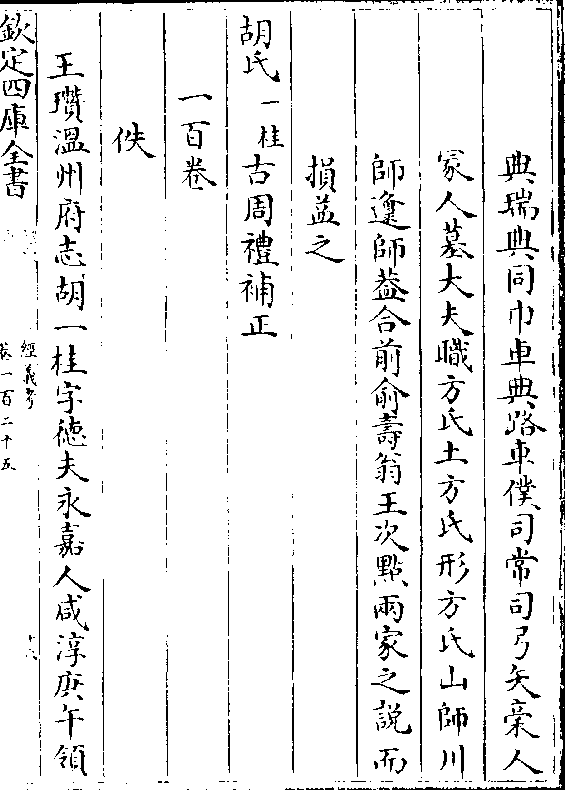 典瑞典同巾車典路車僕司常司弓矢稾人
冡人墓大夫職方氏土方氏形方氏山師川
師邍師葢合前俞壽翁王次點兩家之說而
損益之
胡氏一桂古周禮補正
一百卷
佚
王瓚溫州府志胡一桂字德夫永嘉人咸淳庚午領
欽定四庫全書
經義考
卷一百二十五
十六